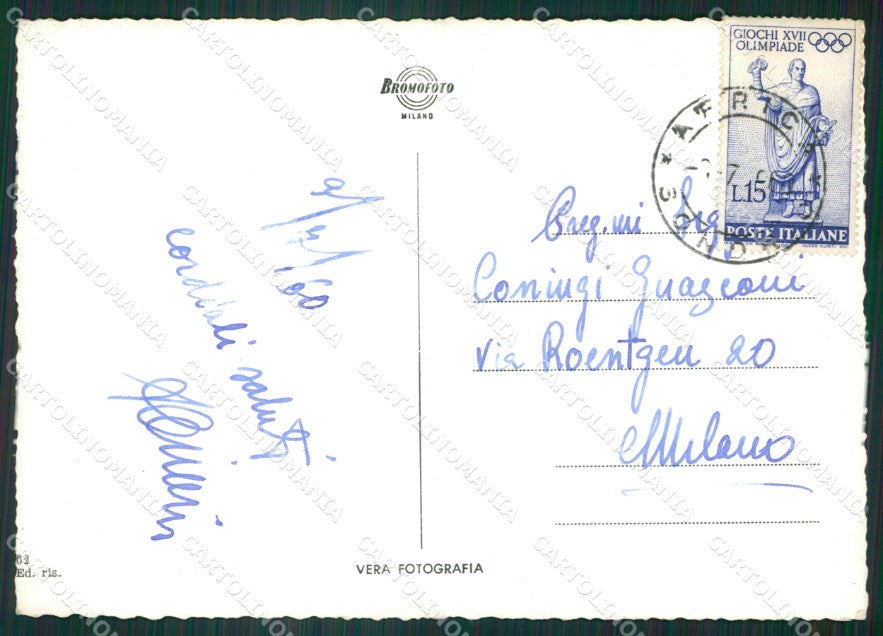 BROMOFOTO
MILANO
GIOCHI XVII
OLIMPIADE
L.15
POSTE ITALIANE
9/7/60
cordiali saluti
Preg.mi Sig
Coniugi Guazzoni
Via Roentgen 20
Milano
62
Ed. ris.
VERA FOTOGRAFIA
CARTOLINOMANIA